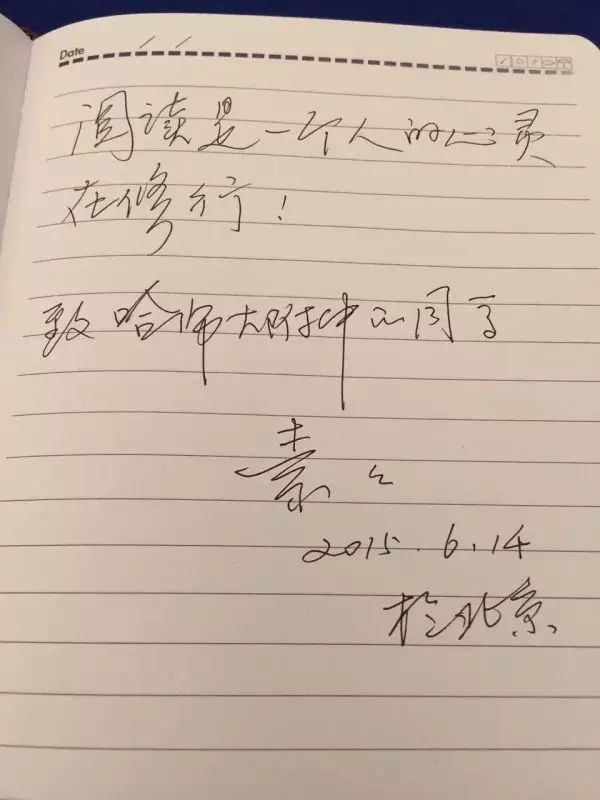 Date / /
阅读是一个人的心灵
在修行！
致哈师大附中的同学
2015.6.14
于北京